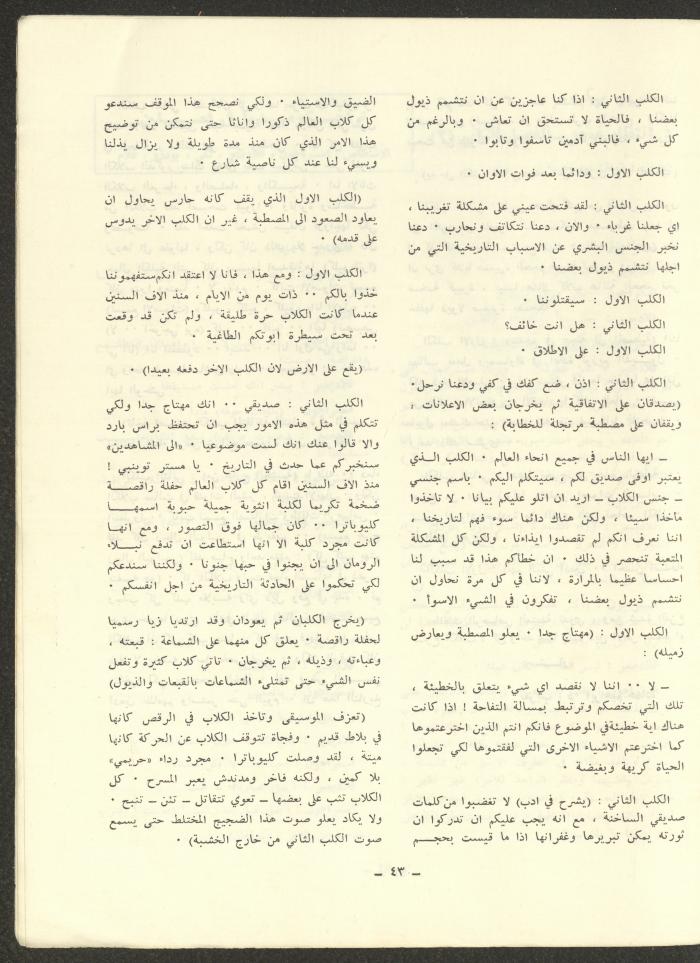 الكلب الثاني : اذا كنا عاجزين عن ان نتشمم ذيول
بعضنا ، فالحياة لا تستحق ان تعاش ٠ وبالرغم من
كل شيء ، فالبني آدمين تأسفوا وتابوا ٠
الكلب الاول : ودائما بعد فوات الاوان ٠
الكلب الثاني : لقد فتحت عيني على مشكلة تغريبنا ،
اي جعلنا غرباء ٠ والان ، دعنا نتكاتف ونحارب ٠ دعنا
نخبر الجنس البشري عن الاسباب التاريخية التي من
اجلها نتشمم ذيول بعضنا ٠
الكلب الاول : سيقتلوننا ٠
الكلب الثاني : هل انت خائف؟
الكلب الاول : على الاطلاق ٠
الكلب الثاني : اذن ، ضع كفك في كفي ودعنا نرحل٠
(يصدقان على الاتفاقية ثم يخرجان بعض الاعلانات ،
ويقفان على مصطبة مرتجلة للخطابة) :
ــ ايها الناس في جميع انحاء العالم ٠ الكلب الــذي
يعتبر اوفى صديق لكم ، سيتكلم اليكم ٠ باسم جنسي
ــ جنس الكلاب ــ اريد ان اتلو عليكم بيانا ٠ لا تاخذوا
مأخذا سيئا ، ولكن هناك دائما سوء فهم لتاريخنا ،
اننا نعرف انكم لم تقصدوا ايذاءنا ، ولكن كل المشكلة
المتعبة تنحصر في ذلك ٠ ان خطاكم هذا قد سبب لنا
احساسا عظيما بالمرارة ، لاننا في كل مرة نحاول ان
نتشمم ذيول بعضنا ، تفكرون في الشيء الاسوأ ٠
الكلب الاول : (مهتاج جدا ٠ يعلو المصطبة ويعارض
زميله) :
ــ لا ٠٠ اننا لا نقصد اي شيء يتعلق بالخطيئة ،
تلك التي تخصكم وترتبط بمسالة التفاحة ! اذا كانت
هناك اية خطيئةفي الموضوع فانكم انتم الذين اخترعتموها
كما اخترعتم الاشياء الاخرى التي لفقتموها لكي تجعلوا
الحياة كريهة وبغيضة ٠
الكلب الثاني : (يشرح في ادب) لا تغضبوا من كلمات
صديقي الساخنة ، مع انه يجب عليكم ان تدركوا ان
ثورته يمكن تبريرها وغفرانها اذا ما قيست بحجـــم
الضيق والاستياء ٠ ولكي نصحح هذا الموقف سندعو
كل كلاب العالم ذكورا واناثا حتى نتمكن من توضيح
هذا الامر الذي كان منذ مدة طويلة ولا يزال يذلنا
ويسيء لنا عند كل ناصية شارع ٠
(الكلب الاول الذي يقف كانه حارس يحاول ان
يعاود الصعود الى المصطبة ، غير ان الكلب الاخر يدوس
على قدمه) ٠
الكلب الاول : ومع هذا ، فانا لا اعتقد انكم ستفهموننا
خذوا بالكم ٠٠ ذات يوم من الايام ، منذ الاف السنين
عندما كانت الكلاب حرة طليقة ، ولم تكن قد وقعت
بعد تحت سيطرة ابوتكم الطاغية ٠
(يقع على الارض لان الكلب الاخر دفعه بعيدا) ٠
الكلب الثاني : صديقي ٠٠ انك مهتاج جدا ولكي
تتكلم في مثل هذه الامور يجب ان تحتفظ براس بارد
والا قالوا عنك انك لست موضوعيا ٠ «الى المشاهدين»
سنخبركم عما حدث في التاريخ ٠ يا مستر توينبي !
منذ الاف السنين اقام كل كلاب العالم حفلة راقصــة
ضخمة تكريما لكلبة انثوية جميلة حبوبة اسمهـــا
كليوباترا ٠٠ كان جمالها فوق التصور ، ومع انهــا
كانت مجرد كلبة الا انها استطاعت ان تدفع نبــلاء
الرومان الى ان يجنوا في حبها جنونا ٠ ولكننا سندعكم
لكي تحكموا على الحادثة التاريخية من اجل انفسكم ٠
(يخرج الكلبان ثم يعودان وقد ارتديا زيا رسميا
لحفلة راقصة ٠ يعلق كل منهما على الشماعة : قبعته ،
وعباءته ، وذيله ، ثم يخرجان ٠ تاتي كلاب كثيرة وتفعل
نفس الشيء حتى تمتلىء الشماعات بالقبعات والذيول)
(تعزف الموسيقى وتاخذ الكلاب في الرقص كانها
في بلاط قديم ٠ وفجاة تتوقف الكلاب عن الحركة كانها
ميتة ، لقد وصلت كليوباترا ٠ مجرد رداء «حريمي»
بلا كمين ، ولكنه فاخر ومدندش يعبر المسرح ٠ كل
الكلاب تثب على بعضها ــ تعوي تتقاتل ــ تئن ــ تنبح ٠
ولا يكاد يعلو صوت هذا الضجيج المختلط حتى يسمع
صوت الكلب الثاني من خارج الخشبة) ٠
ــ ٤٣ ــ